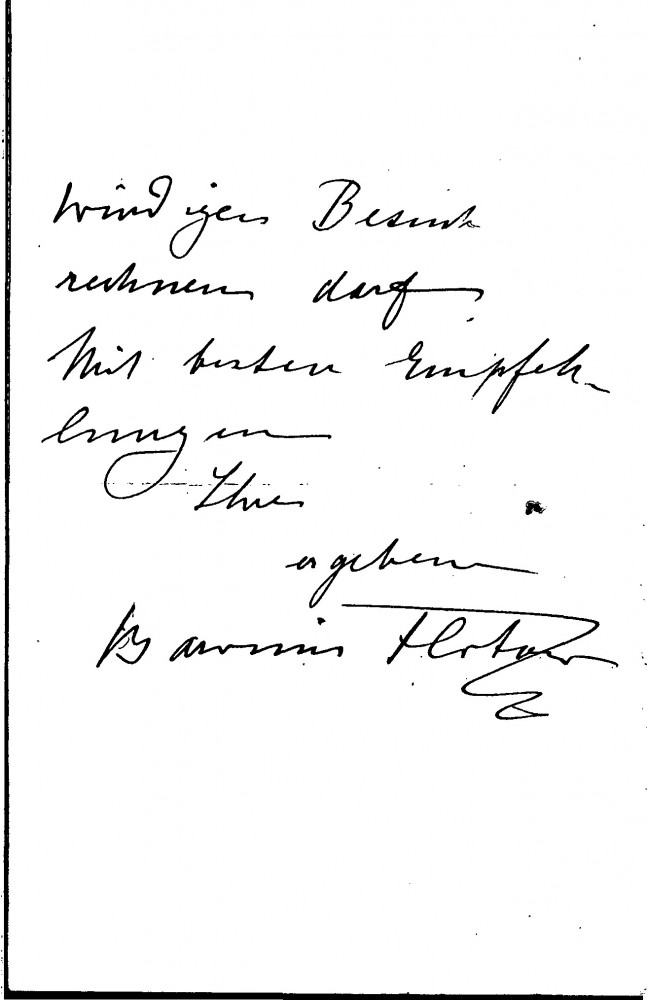 würdigen Besuch
rechnen darf
Mit besten Empfeh-
lungen
Ihre
ergebene
Baronin Flotow